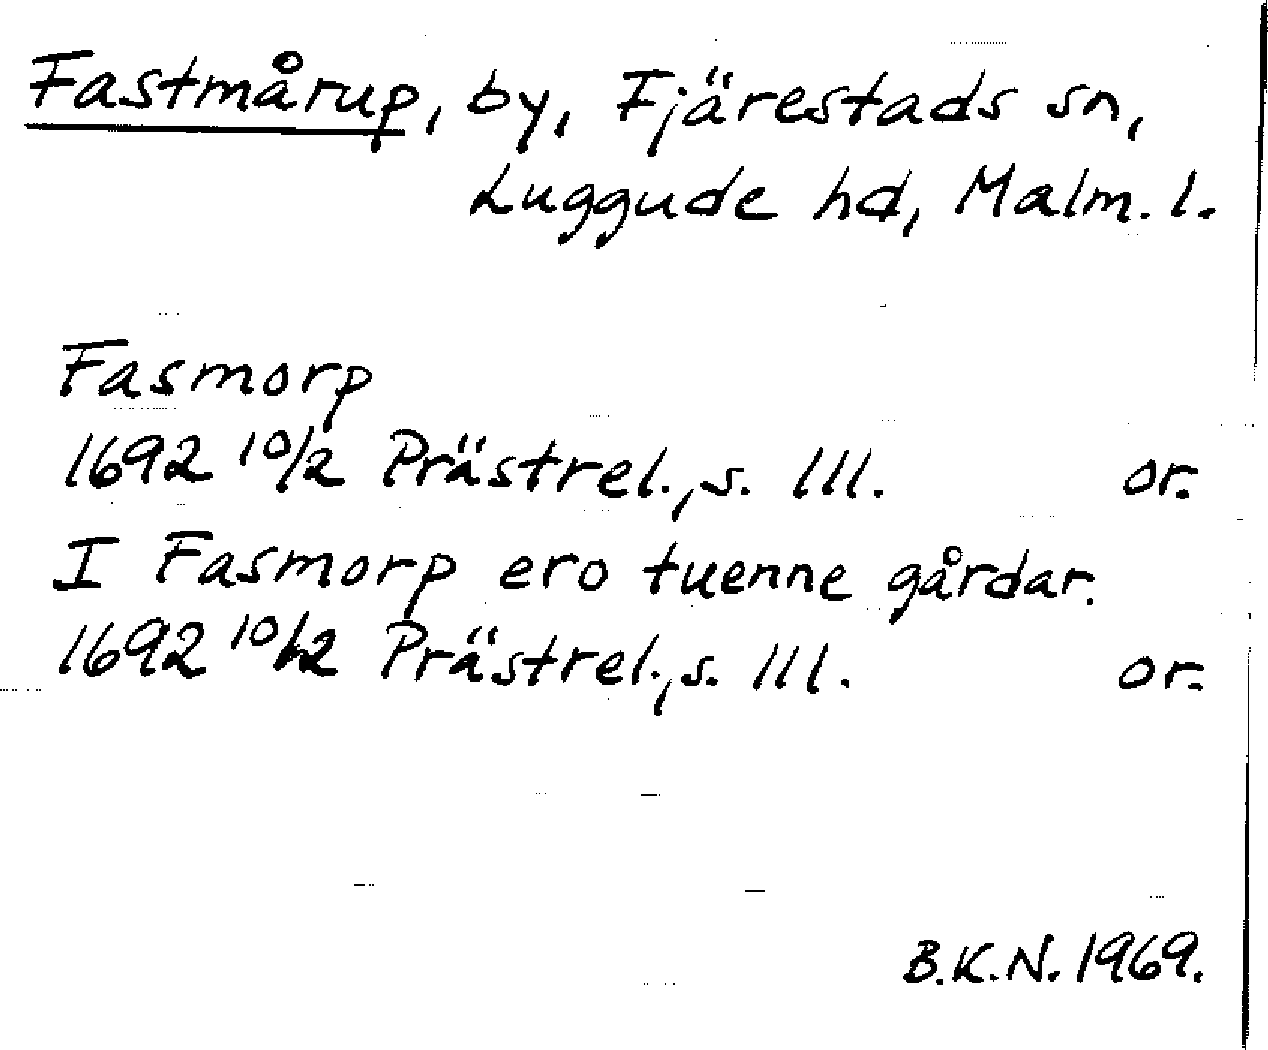 Fastmårup, by, Fjärestads sn,
Luggude hd, Malm. l.
Fasmorp
1692 10/2 Prästrel., s. 111. or.
I Fasmorp ero tuenne gårdar.
1692 10/2 Prästrel., s. 111. or.
B.K.N. 1969.